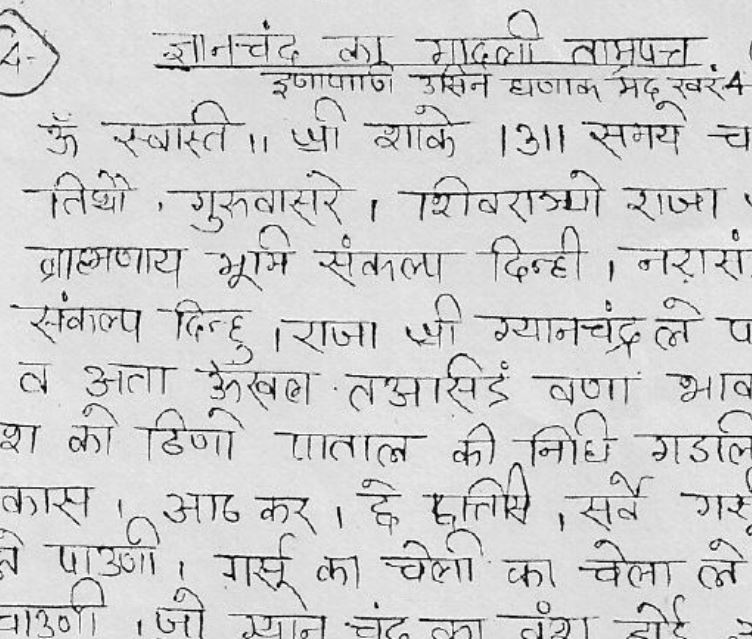 4-
ज्ञानचंद का गादली ताम्रपत्र
उसिन घणाक 4
ॐ स्वास्ति ॥ श्री शाके 1311 समये च
तिथौ । गुरुवासरे । राजा
ब्राह्मणाय भूमि संकल्पा दिन्ही । नरसिं
संकल्प दिन्हु । राजा श्री ग्यानचंद्र ले प
व अता ऊखल वणा भाव
श को ढिणो पाताल की निधि गडलि
कास । आठ कर । छे छत्तिसि । सर्वे
ले पाउणी । का चेली का चेला ले
पाउणी । जो ग्यान चंद का वंश होई